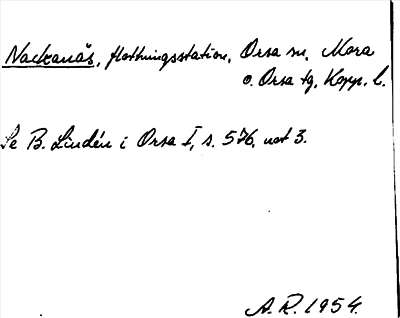 Nackanäs, flottningsstation, Orsa sn, Mora
o. Orsa tg, Kopp. l.
Se B. Lindén i Orsa I, s. 576, not 3.
A.R. 1954.